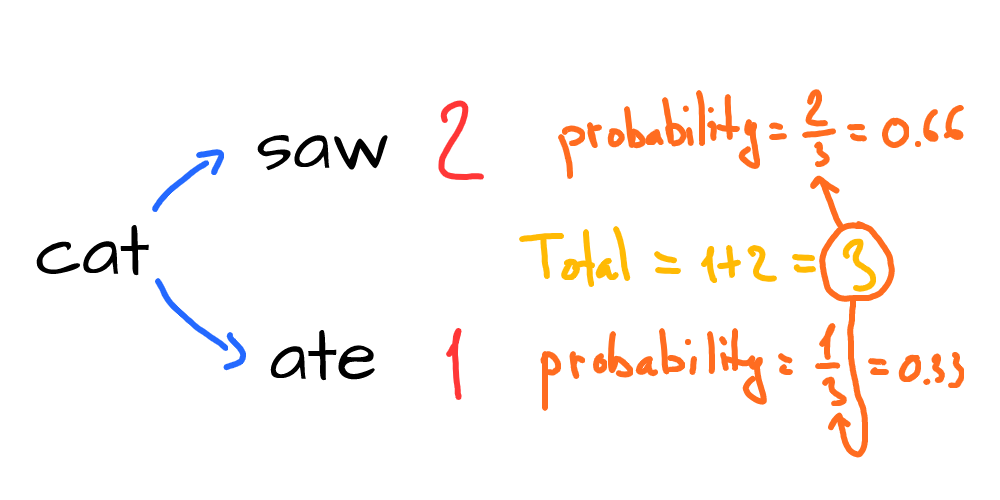 saw 2 probability = 2/3 = 0.66
cat
Total = 1+2 = 3
ate 1 probability = 1/3 = 0.33